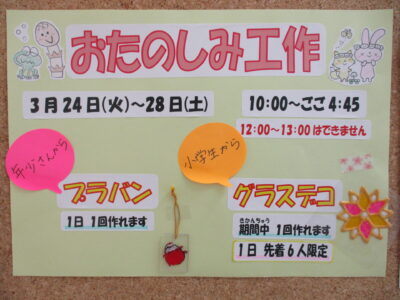 おたのしみ工作
3月24日(火)~28日(土)
10:00~ごご4:45
12:00~13:00はできません
年少さんから
プラバン
1日 1回作れます
小学生から
グラスデコ
きかんちゅう
期間中 1回作れます
1日 先着6人限定